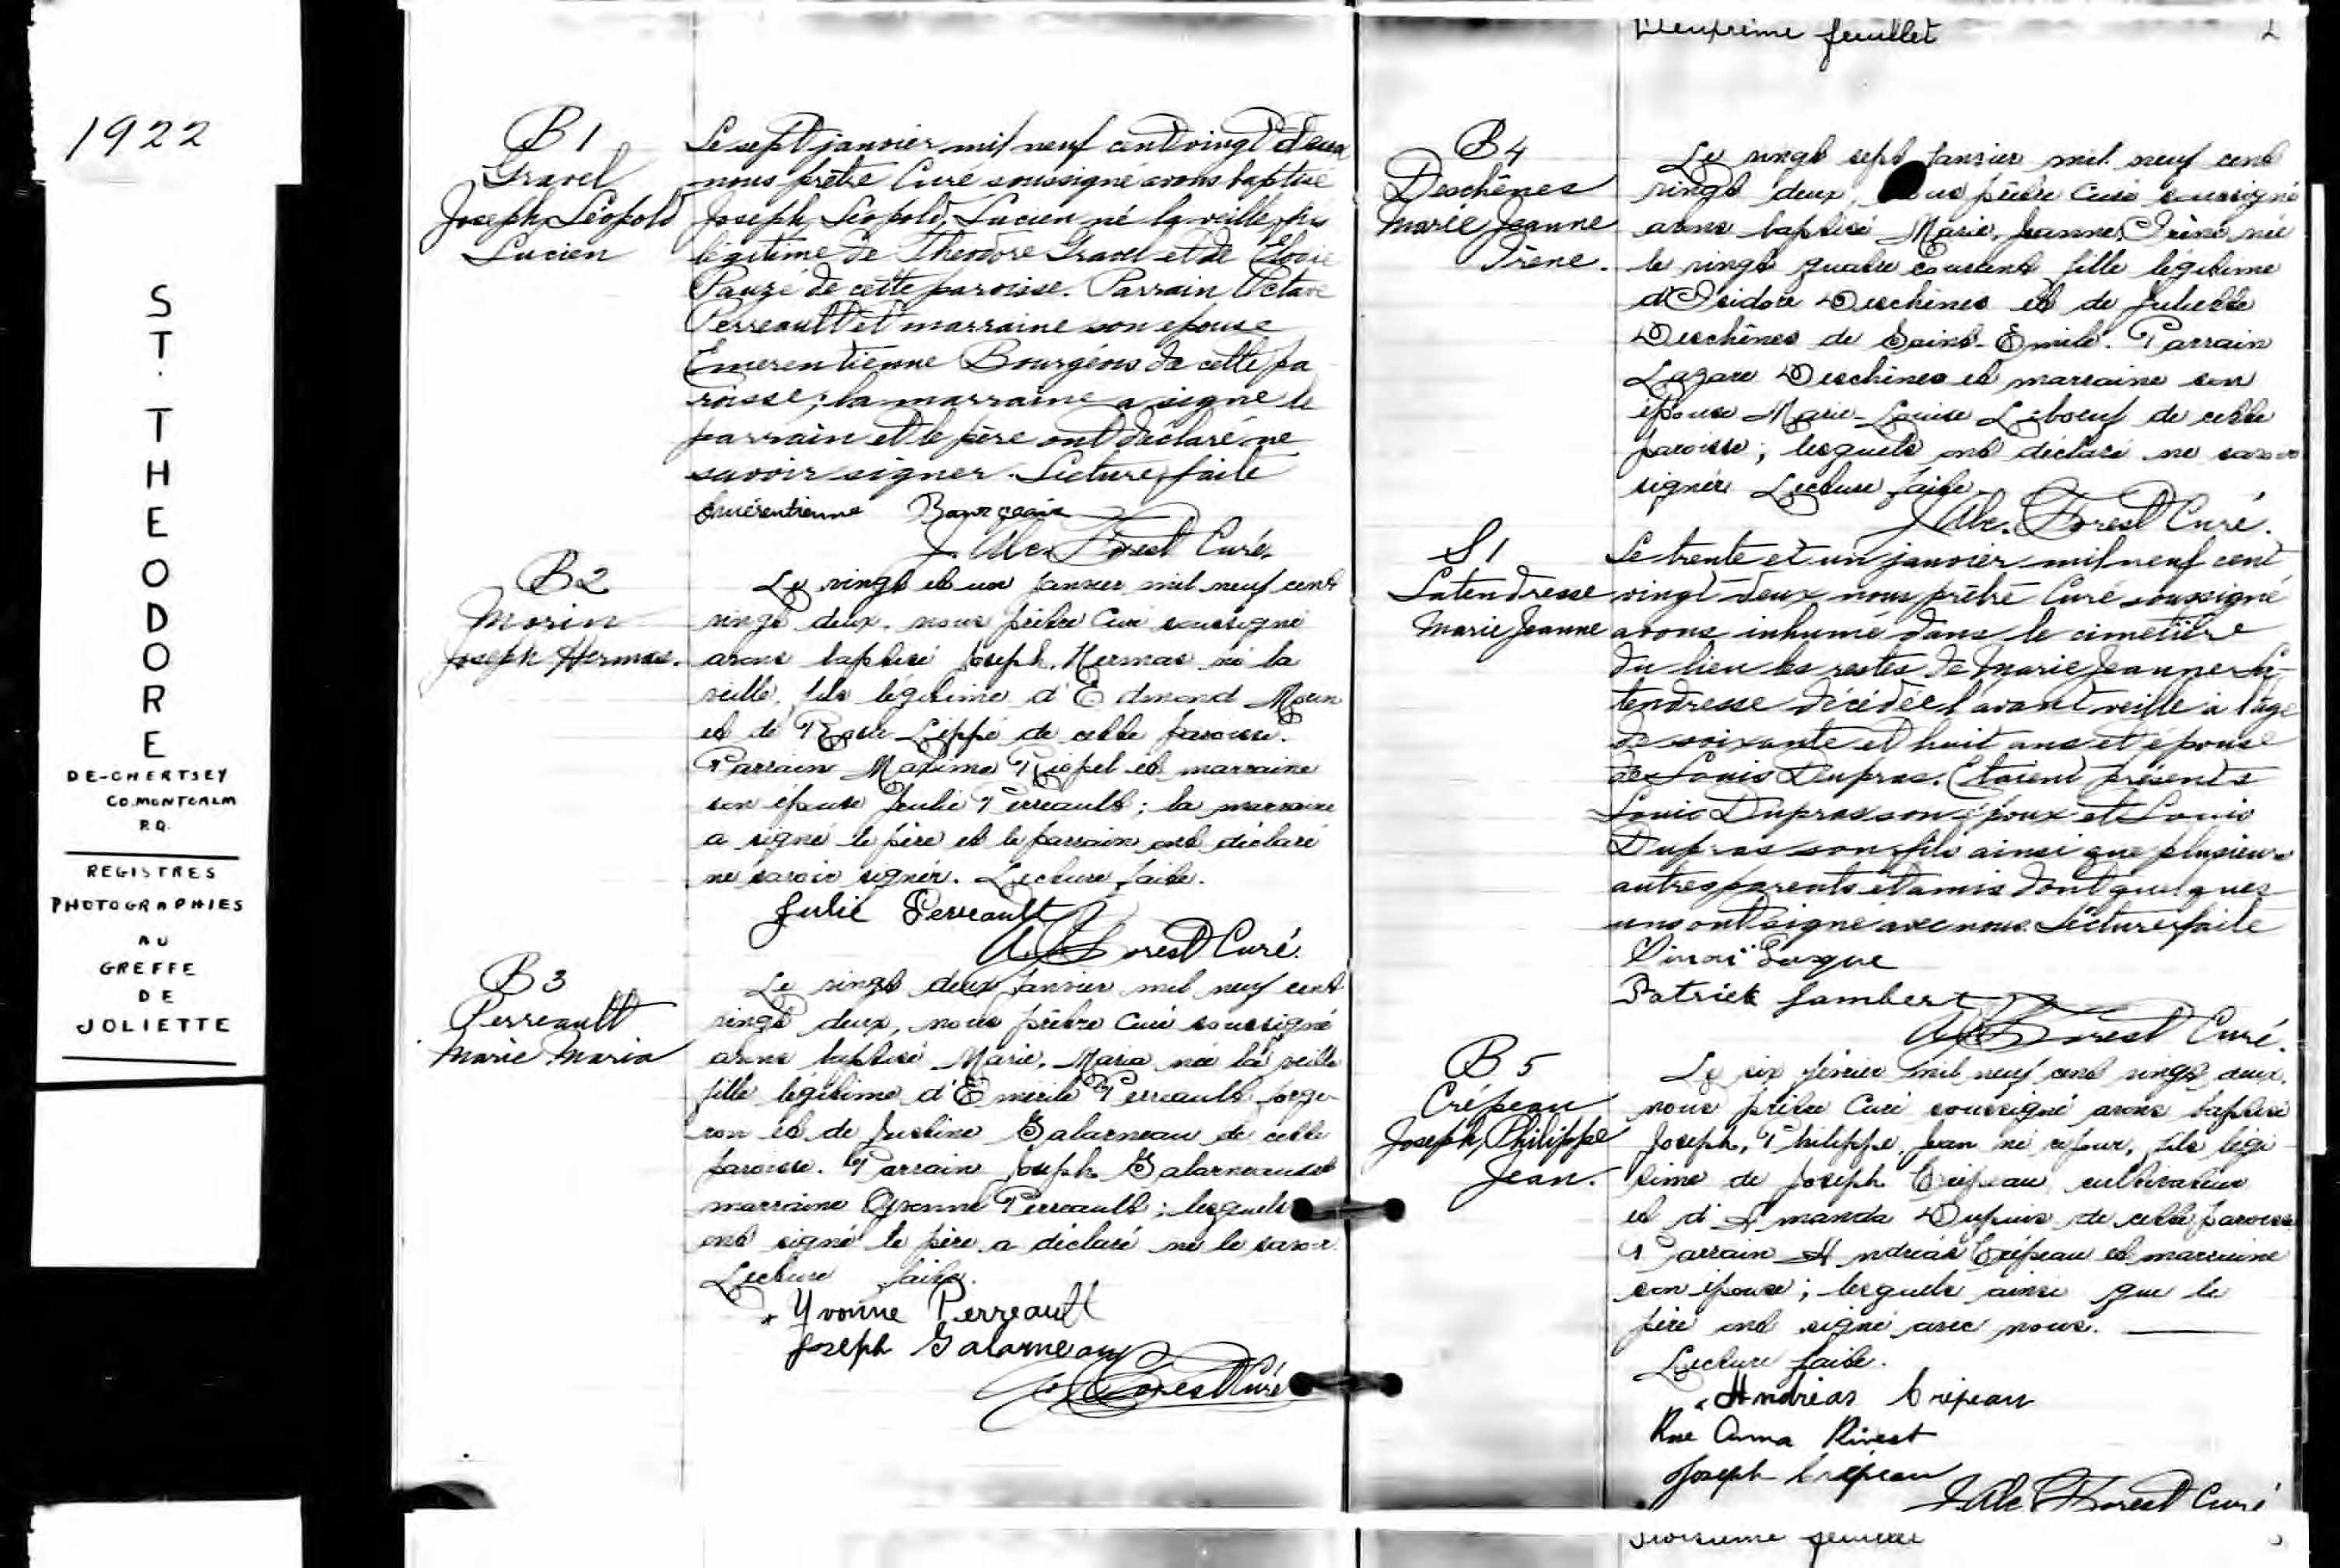 1922
ST. THEODORE
DE-CHERTSEY
CO. MONTCALM
P.Q.
REGISTRES
PHOTOGRAPHIES
AU
GREFFE
DE
JOLIETTE
B1
Gravel
Joseph Léopold
Lucien
Le sept janvier mil neuf cent vingt deux
nous prêtre Curé soussigné avons baptisé
Joseph, Léopold, Lucien né la veille, fils
légitime de Théodore Gravel et de
Pauzé de cette paroisse. Parrain Octave
Perreault et marraine son épouse
Emerentienne Bourgeois de cette pa
roisse; la marraine a signé le
parrain et le père ont déclaré ne
savoir signer. Lecture faite
Emérentienne Bourgeois
J. Alc. Forest Curé.
B2
Morin
Joseph Hermas.
Le vingt et un janvier mil neuf cent
vingt deux, nous prêtre Curé soussigné
avons baptisé Joseph, Hermas né la
veille, fils légitime d'Edmond Morin
et de Rose Lippé de cette paroisse.
Parrain Maxime Riopel et marraine
son épouse Julie Perreault; la marraine
a signé le père et le parrain ont déclaré
ne savoir signer. Lecture faite.
Julie Perreault
Forest Curé.
B3
Perreault
Marie Maria
Le vingt deux janvier mil neuf cent
vingt deux, nous prêtre Curé soussigné
avons baptisé Marie, Maria née la veille
fille légitime d'Emérile Perreault forge-
ron et de Justine Galarneau de cette
paroisse. Parrain Joseph Galarneau et
marraine Yvonne Perreault; lesquels
ont signé le père a déclaré ne le savoir.
Lecture faite.
Yvonne Perreault
Joseph Galarneau
Forest Curé
Deuxième feuillet
2
B4
Deschênes
Marie Jeanne
Irène.
Le vingt sept janvier mil neuf cent
vingt deux, nous prêtre Curé soussigné
avons baptisé Marie, Jeanne, Irène née
le vingt quatre courant fille légitime
d'Isidore Deschênes et de Juliette
Deschênes de Saint-Emile. Parrain
Lazare Deschênes et marraine son
épouse Marie-Louise Leboeuf de cette
paroisse; lesquels ont déclaré ne savoir
signer. Lecture faite.
J. Alc. Forest Curé.
S1
Latendresse
Marie Jeanne
Le trente et un janvier mil neuf cent
vingt-deux nous prêtre Curé soussigné
avons inhumé dans le cimetière
du lieu les restes de Marie Jeanne La-
tendresse décédée l'avant veille à l'âge
de soixante et huit ans et épouse
de Louis Dupras. Etaient présents
Louis Dupras son époux et Louis
Dupras son fils ainsi que plusieurs
autres parents et amis dont quelques
uns ont signé avec nous. Lecture faite
Patrick Lambert
Forest Curé.
B5
Crépeau
Joseph, Philippe
Jean.
Le six février mil neuf cent vingt deux,
nous prêtre Curé soussigné avons baptisé
Joseph, Philippe, Jean né ce jour, fils légi
time de Joseph Crépeau cultivateur
et d'Amanda Dupuis de cette paroisse.
Parrain Andréas Crépeau et marraine
son épouse; lesquels ainsi que le
père ont signé avec nous.
Lecture faite.
Andréas Crépeau
Anna Rivest
Joseph Crépeau
J. Alc. Forest Curé
Troisième feuillet